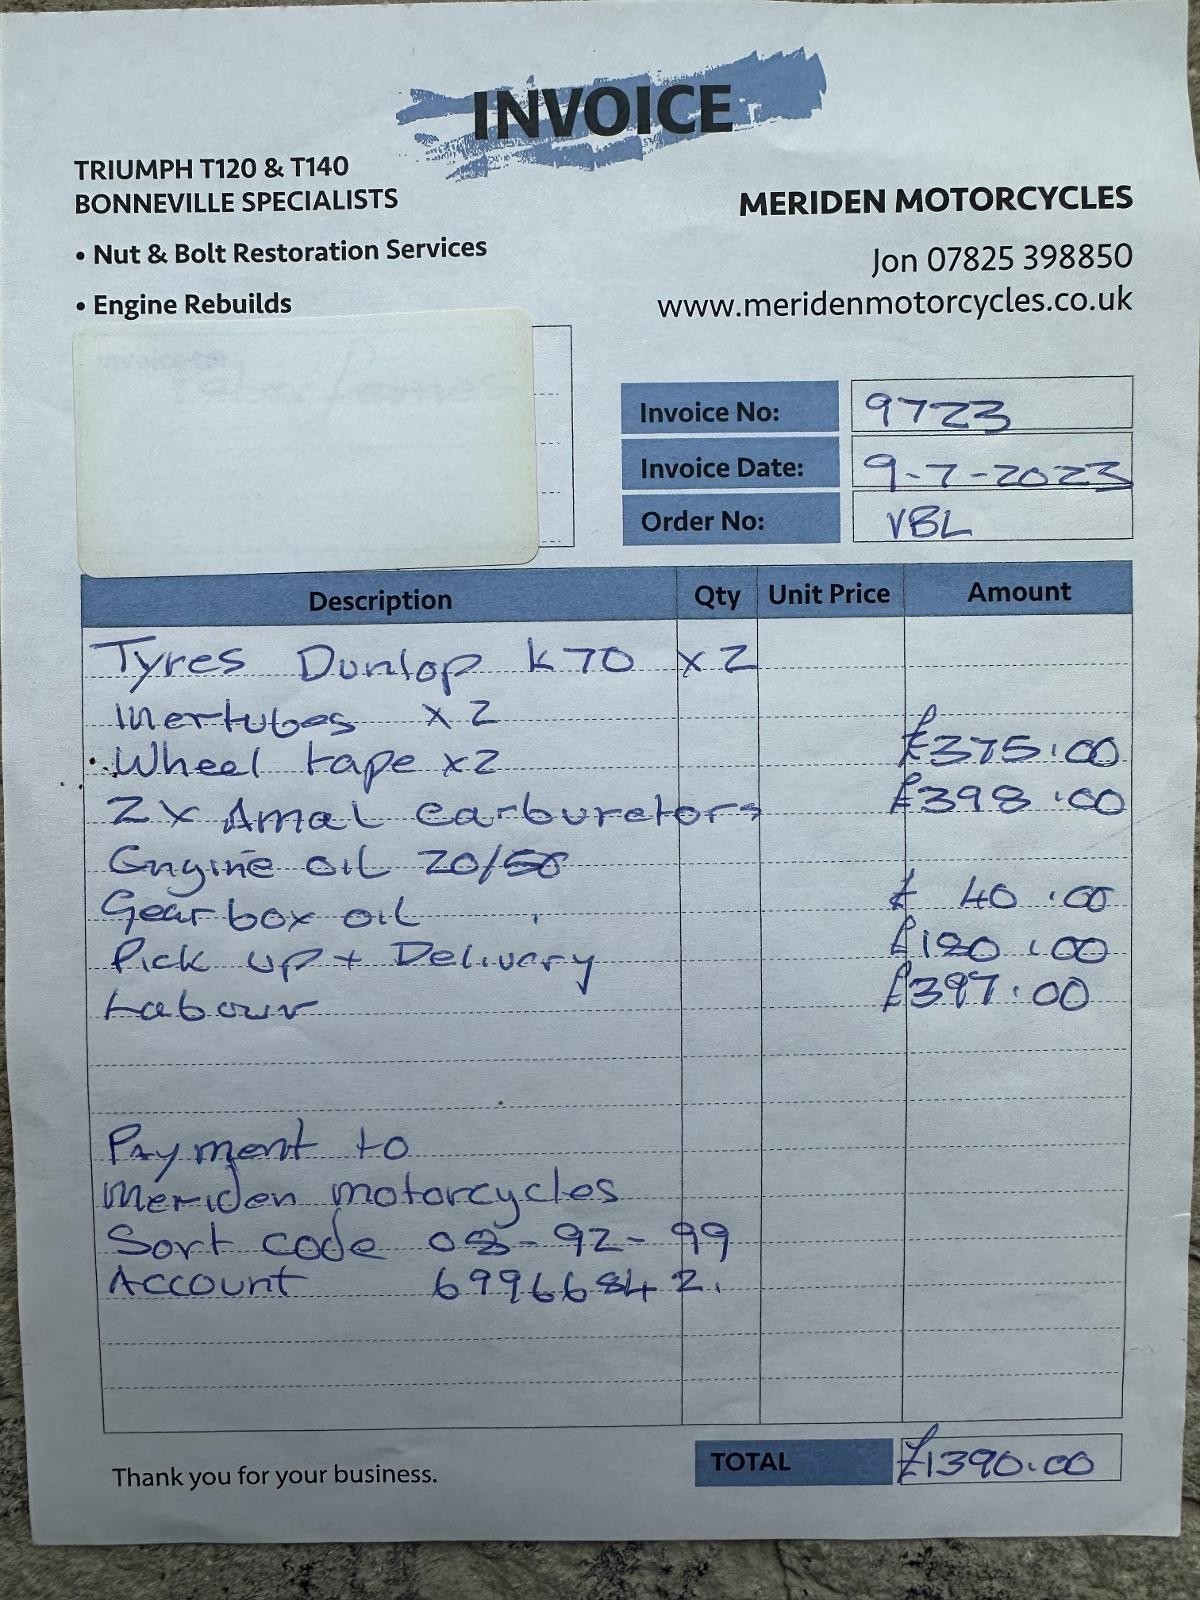 INVOICE
TRIUMPH T120 & T140
BONNEVILLE SPECIALISTS
• Nut & Bolt Restoration Services
• Engine Rebuilds
MERIDEN MOTORCYCLES
Jon 07825 398850
www.meridenmotorcycles.co.uk
Invoice No: 9723
Invoice Date: 9-7-2023
Order No: VBL
Description Qty Unit Price Amount
Tyres Dunlop K70 x2
Inertubes x2
Wheel tape x2 £375.00
2x Amal Carburetors £398.00
Engine oil 20/50
Gearbox oil £ 40.00
Pick up + Delivery £180.00
Labour £397.00
Payment to
Meriden motorcycles
Sort code 08-92-99
Account 69966842.
Thank you for your business.
TOTAL £1390.00